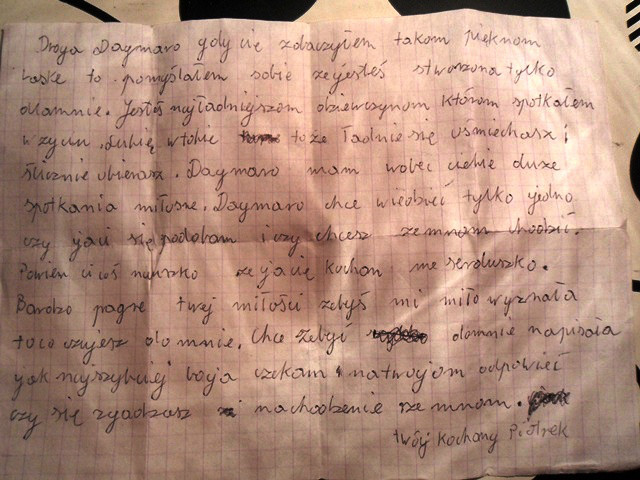 Droga Dagmaro gdy cię zobaczyłem takom pięknom
laske to pomyślałem sobie że jesteś stworzona tylko
dlamnie. Jesteś najładniejszom dziewczynom którom spotkałem
w życiu. Lubię w tobie to że ładnie się uśmiechasz i
ślicznie ubierasz. Dagmaro mam wobec ciebie duże
spotkania miłosne. Dagmaro chce wiedzieć tylko jedno
czy jaci się podobam i czy chcesz ze mnom choodzić.
Powien ci coś na uszko że ja cię kochan me serduszko.
Bardzo pagne twej miłości żebyś mi miło wyznała
to co czujesz do mnie. Chce żebyś domnie napisała
jak najszybciej boja czekam na twojom odpowieć
czy się zgadzasz na chodzenie ze mnom.
twój kochany Piotrek